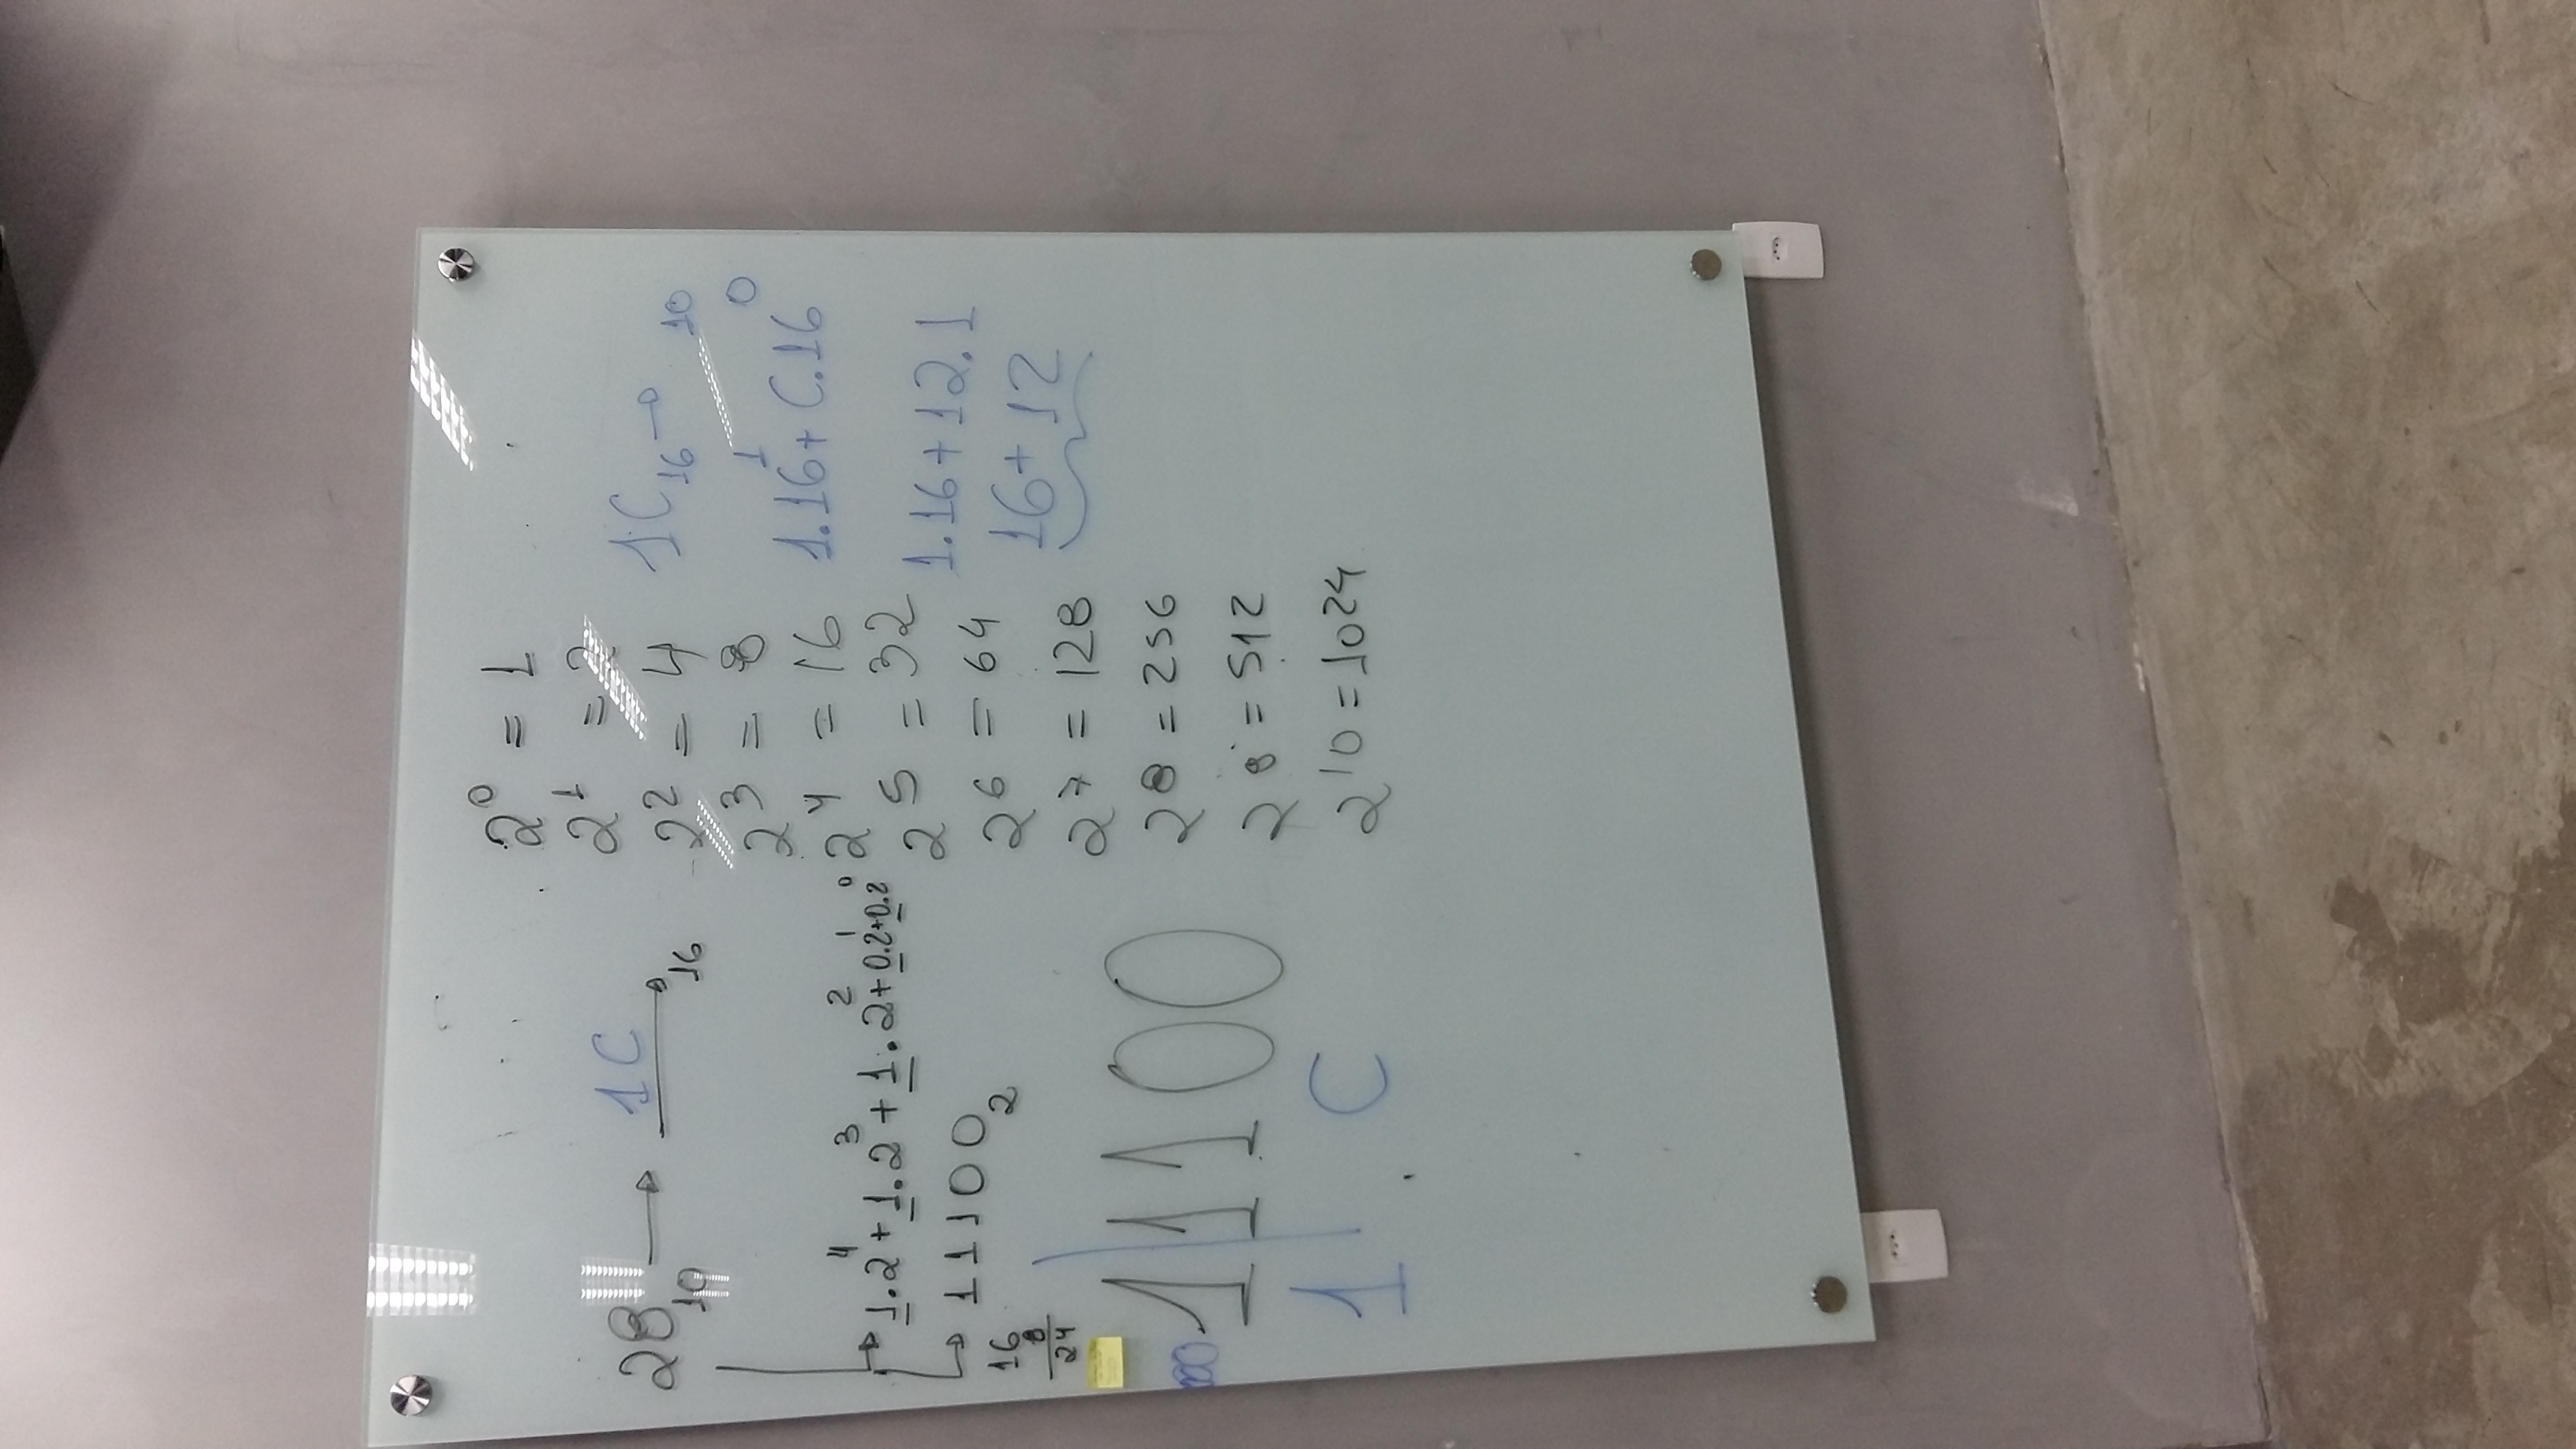 28₁₀ → 1C₁₆
1.2⁴ + 1.2³ + 1.2² + 0.2¹ + 0.2⁰
11100₂
16
8
24
000 1 | 1 1 0 0
1 C
2⁰ = 1
2¹ = 2
2² = 4
2³ = 8
2⁴ = 16
2⁵ = 32
2⁶ = 64
2⁷ = 128
2⁸ = 256
2⁸ = 512
2¹⁰ = 1024
1C₁₆ → ₁₀
1.16¹ + C.16⁰
1.16 + 12.1
16 + 12